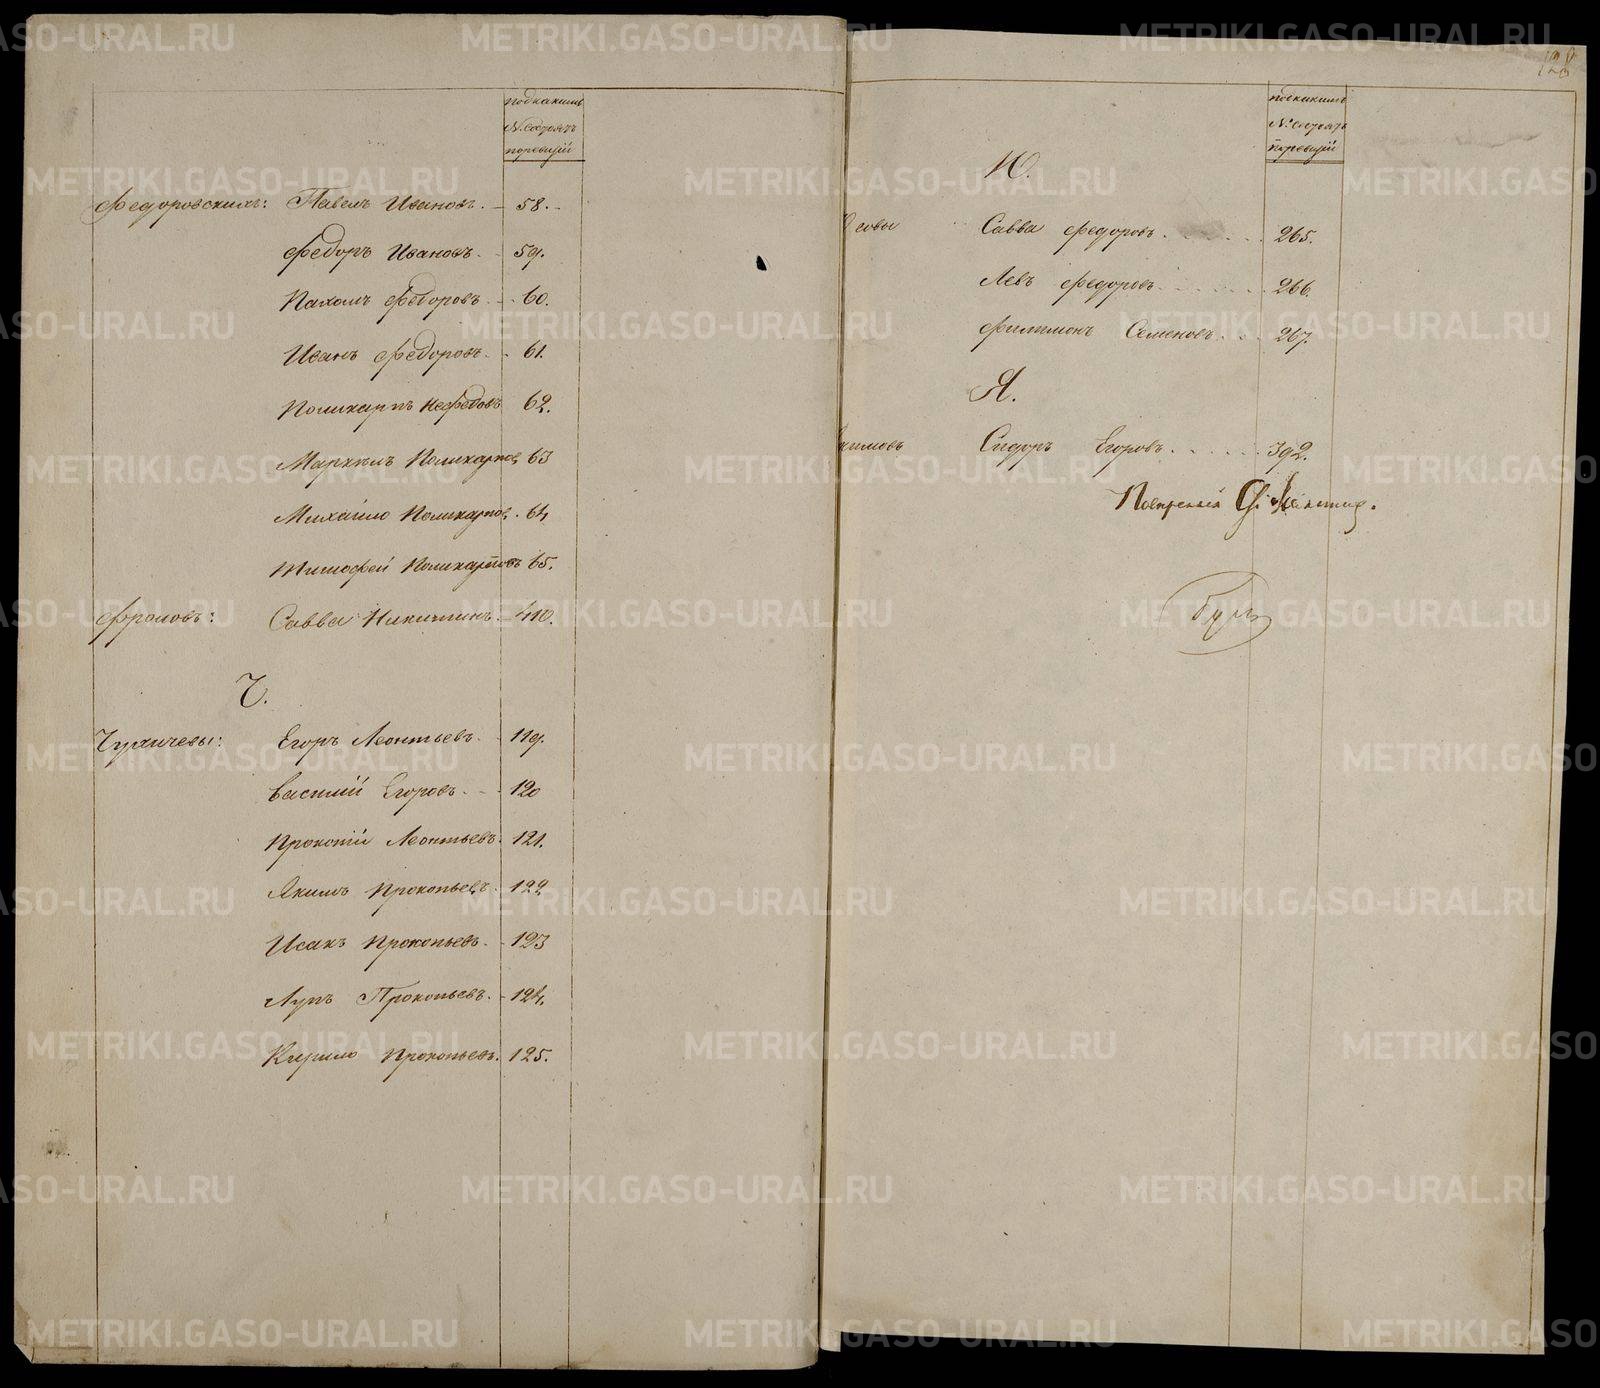 подъ какимъ
№ состоятъ
поревизiи
Федоровскихъ: Павелъ Ивановъ. 58.
Федоръ Ивановъ. 59.
Пахомъ Федоровъ 60.
Иванъ Федоровъ. 61.
Поликарпъ Нефедовъ 62.
Маркелъ Поликарповъ 63
Михайло Поликарповъ. 64
Тимофей Поликарповъ 65.
Фроловъ: Савва Никитинъ. 410.
Ч.
Егоръ Леонтьевъ. 119.
Василий Егоровъ. 120
Прокопiй Леонтьевъ. 121.
Якимъ Прокопьевъ. 122
Исакъ Прокопьевъ. 123
Лупъ Прокопьевъ. 124.
Кирило Прокопьевъ. 125.
128
подъ какимъ
№ состоятъ
поревизiи
Ю.
Савва Федоровъ. 265.
Левъ Федоровъ. 266.
Филимонъ Семеновъ. 267.
Я.
Сидоръ Егоровъ. 392.
METRIKI.GASO-URAL.RU